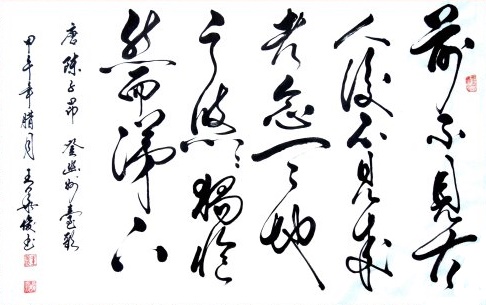 前不見古
人後不見來
者念天地
之悠々獨愴
然而涕下
唐陳子昂 登幽州臺歌
甲午年腊月 王俊书